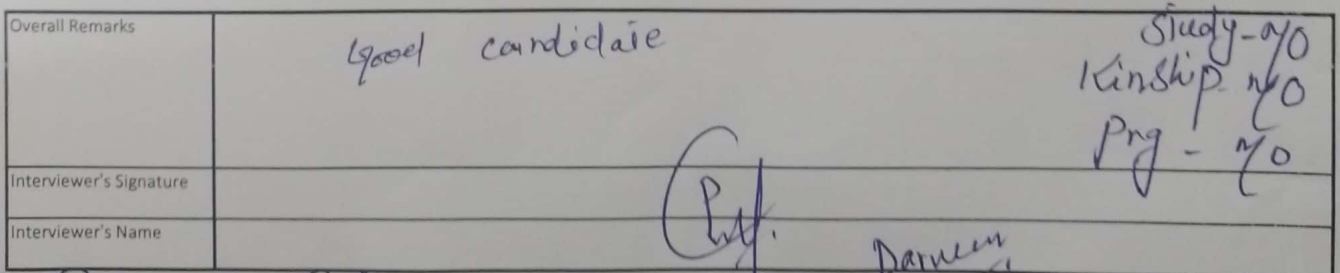 Overall Remarks
Good candidate
Study - no
Kinship - no
Prg - no
Interviewer's Signature
Interviewer's Name